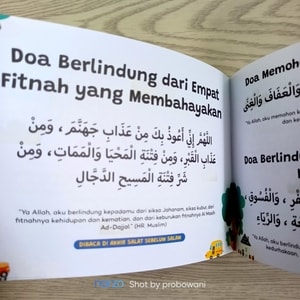 Doa Berlindung dari Empat
Fitnah yang Membahayakan
اللَّهُمَّ إِنِّي أَعُوذُ بِكَ مِنْ عَذَابِ جَهَنَّمَ ، وَمِنْ
عَذَابِ الْقَبْرِ، وَمِنْ فِتْنَةِ الْمَحْيَا وَالْمَمَاتِ، وَمِنْ
شَرِّ فِتْنَةِ الْمَسِيحِ الدَّجَّالِ
"Ya Allah, aku berlindung kepadamu dari siksa Jahanam, siksa kubur, dari
fitnahnya kehidupan dan kematian, dan dari keburukan fitnahnya Al Masih
Ad-Dajjal." (HR. Muslim)
DIBACA DI AKHIR SALAT SEBELUM SALAM
Doa Memoh
وَالْعَفَافَ وَالْغِنَى
"Ya Allah, aku memohon k
Doa Berlind
وَالْفُسُوقِ ،
وَالرِّيَاءِ
"Ya Allah, aku berlindung
kedurhakaan,
Shot by probowani